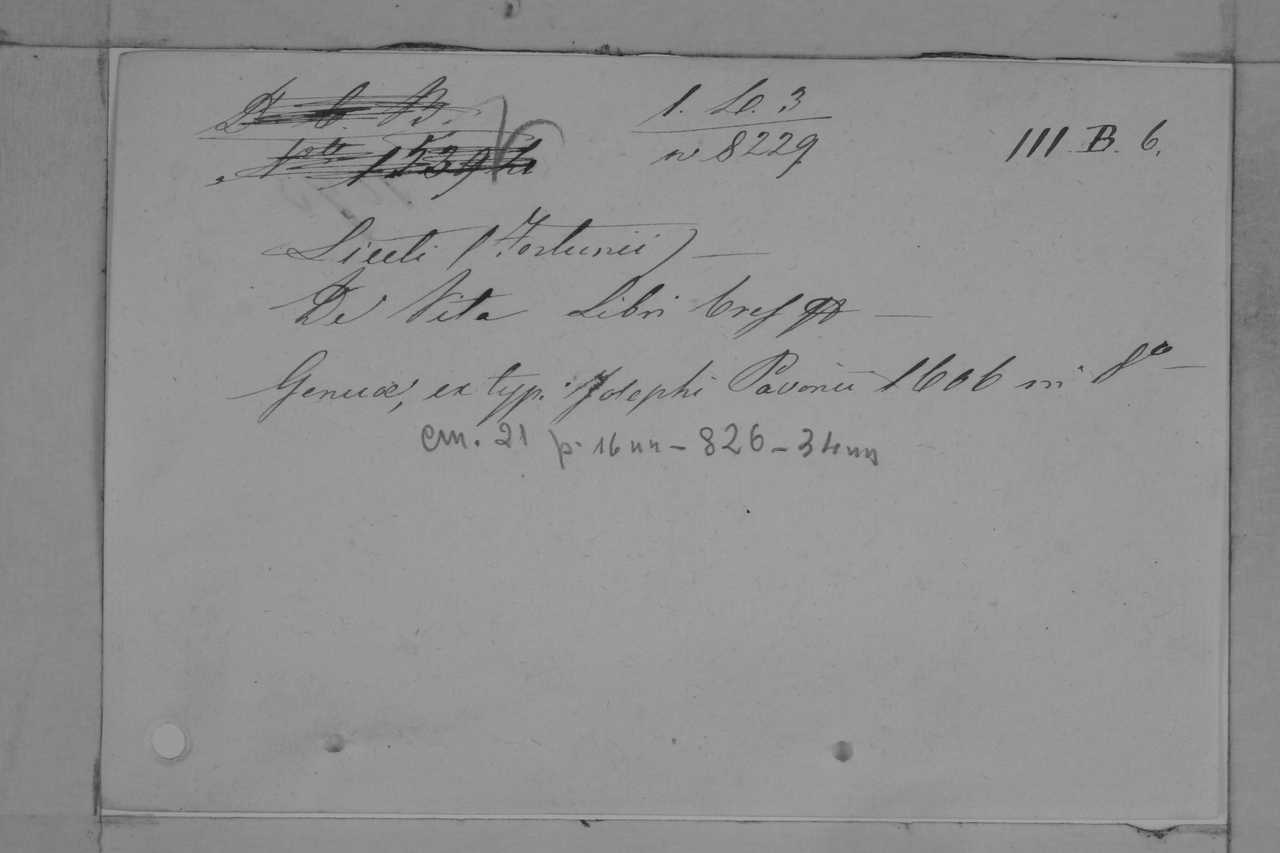 D. C. B.
1539
1. Lo. 3
n 8229
III. B. 6.
Liceti (Fortunii) —
De Vita Libri tres —
Genuæ, ex typ. Josephi Pavonii 1606 in 8º —
cm. 21 p. 16 nn - 826 - 34 nn